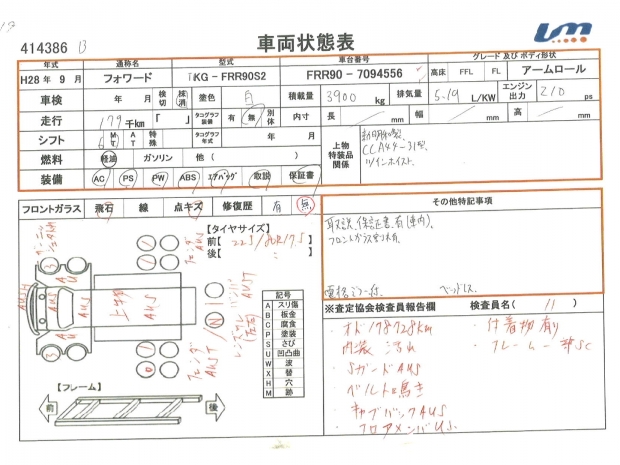 414386 B
車両状態表
um
年式 通称名 型式 車台番号 グレード 及び ボディ形状
H28 年 9 月 フォワード TKG - FRR90S2 FRR90 - 7094556 高床 FFL FL アームロール
車検 年 月 検切 抹消 塗色 白 積載量 3900 kg 排気量 5.19 L/KW エンジン出力 210 ps
走行 179 千km 「 」 タコグラフ装備 有 無 別体 内寸 長 mm 幅 mm 高 mm
シフト 6 MT AT 特殊 タコグラフ年式 年 月
上物特装品関係
新明和製
CLA44-31型
ツインホイスト
燃料 軽油 ガソリン 他 ( )
装備 AC PS PW ABS エアバッグ 取説 保証書
フロントガラス 飛石 線 点キズ 修復歴 有 無
その他特記事項
取説、保証書有(車内)
電格ミラー付 ベッドレス
【タイヤサイズ】
前【 225/80R17.5 】
後【 〃 】
上物 AUS
記号
A スリ傷
B 板金
C 腐食
P 塗装
S さび
U 凹凸曲
W 波
X 替
H 穴
M 跡
【フレーム】
前 後
※査定協会検査員報告欄 検査員名( 11 )
・オド178728km ・付着物有り
・内装 汚れ ・フレーム一部SC
・SガードAUS
・ベルト鳴き
・キャブバックAUS
・フロアメンバUS